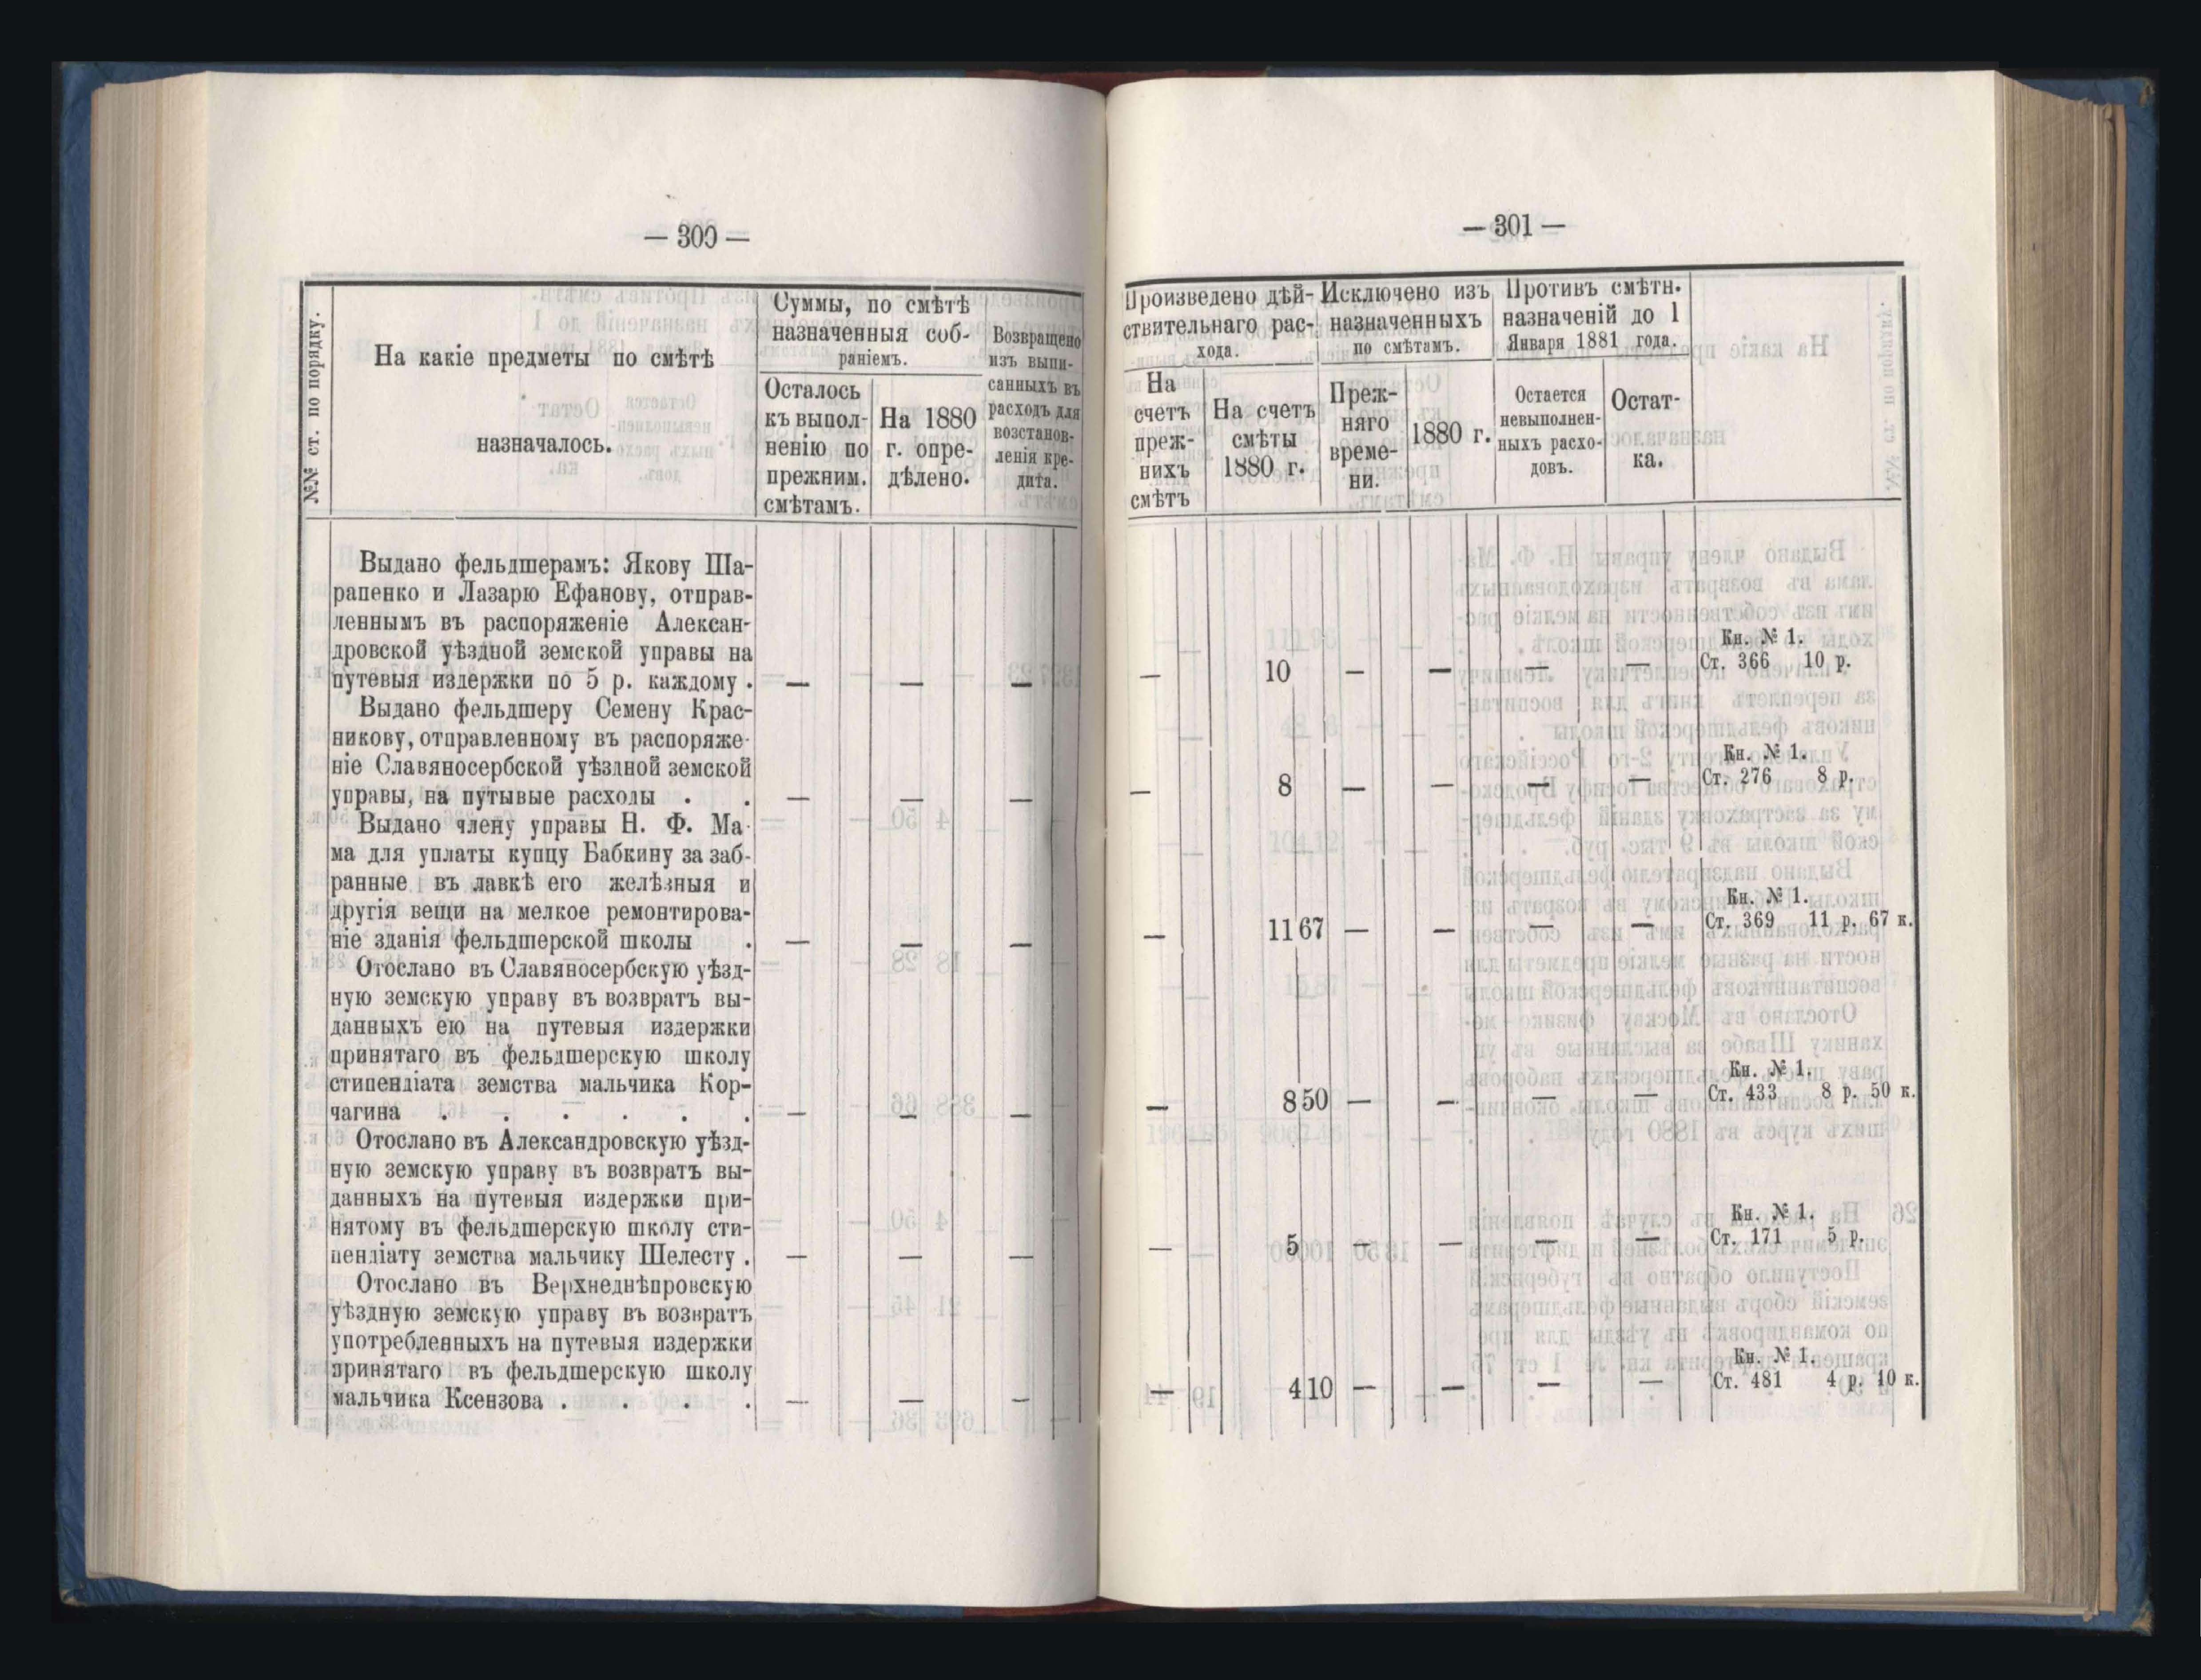 — 300 —
№№ ст. по порядку.
На какіе предметы по смѣтѣ
назначалось.
Суммы, по смѣтѣ
назначенныя соб-
раніемъ.
Осталось
къ выпол-
ненію по
прежним.
смѣтамъ.
На 1880
г. опре-
дѣлено.
Возвращено
изъ выпи-
санныхъ въ
расходъ для
возстанов-
ленія кре-
дита.
Выдано фельдшерамъ: Якову Ша-
рапенко и Лазарю Ефанову, отправ-
леннымъ въ распоряженіе Алексан-
дровской уѣздной земской управы на
путевыя издержки по 5 р. каждому . — — —
Выдано фельдшеру Семену Крас-
никову, отправленному въ распоряже-
ніе Славяносербской уѣздной земской
управы, на путывые расходы . . — — —
Выдано члену управы Н. Ф. Ма-
ма для уплаты купцу Бабкину за заб-
ранные въ лавкѣ его желѣзныя и
другія вещи на мелкое ремонтирова-
ніе зданія фельдшерской школы . — — —
Отослано въ Славяносербскую уѣзд-
ную земскую управу въ возвратъ вы-
данныхъ ею на путевыя издержки
принятаго въ фельдшерскую школу
стипендіата земства мальчика Кор-
чагина . . . . . . — — —
Отослано въ Александровскую уѣзд-
ную земскую управу въ возвратъ вы-
данныхъ на путевыя издержки при-
нятому въ фельдшерскую школу сти-
пендіату земства мальчику Шелесту . — — —
Отослано въ Верхнеднѣпровскую
уѣздную земскую управу въ возвратъ
употребленныхъ на путевыя издержки
принятаго въ фельдшерскую школу
мальчика Ксензова . . . . — — —
— 301 —
Произведено дѣй-
ствительнаго рас-
хода.
На
счетъ
преж-
нихъ
смѣтъ
На счетъ
смѣты
1880 г.
Исключено изъ
назначенныхъ
по смѣтамъ.
Преж-
няго
време-
ни.
1880 г.
Противъ смѣтн.
назначеній до 1
Января 1881 года.
Остается
невыполнен-
ныхъ расхо-
довъ.
Остат-
ка.
Кн. № 1.
— 10 — — — — Ст. 366 10 р.
Кн. № 1.
— 8 — — — — Ст. 276 8 р.
Кн. № 1.
— 11 67 — — — — Ст. 369 11 р. 67 к.
Кн. № 1.
— 8 50 — — — — Ст. 433 8 р. 50 к.
Кн. № 1.
— 5 — — — — Ст. 171 5 р.
Кн. № 1.
— 4 10 — — — — Ст. 481 4 р. 10 к.